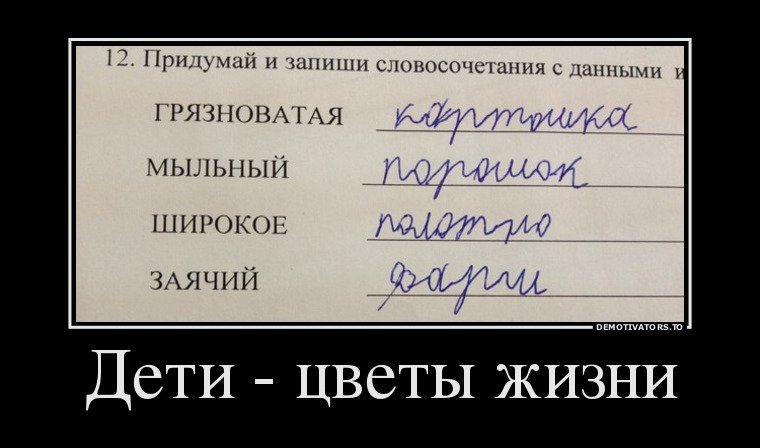 12. Придумай и запиши словосочетания с данными и
ГРЯЗНОВАТАЯ картошка
МЫЛЬНЫЙ порошок
ШИРОКОЕ полотно
ЗАЯЧИЙ фарш
DEMOTIVATORS.TO
Дети - цветы жизни